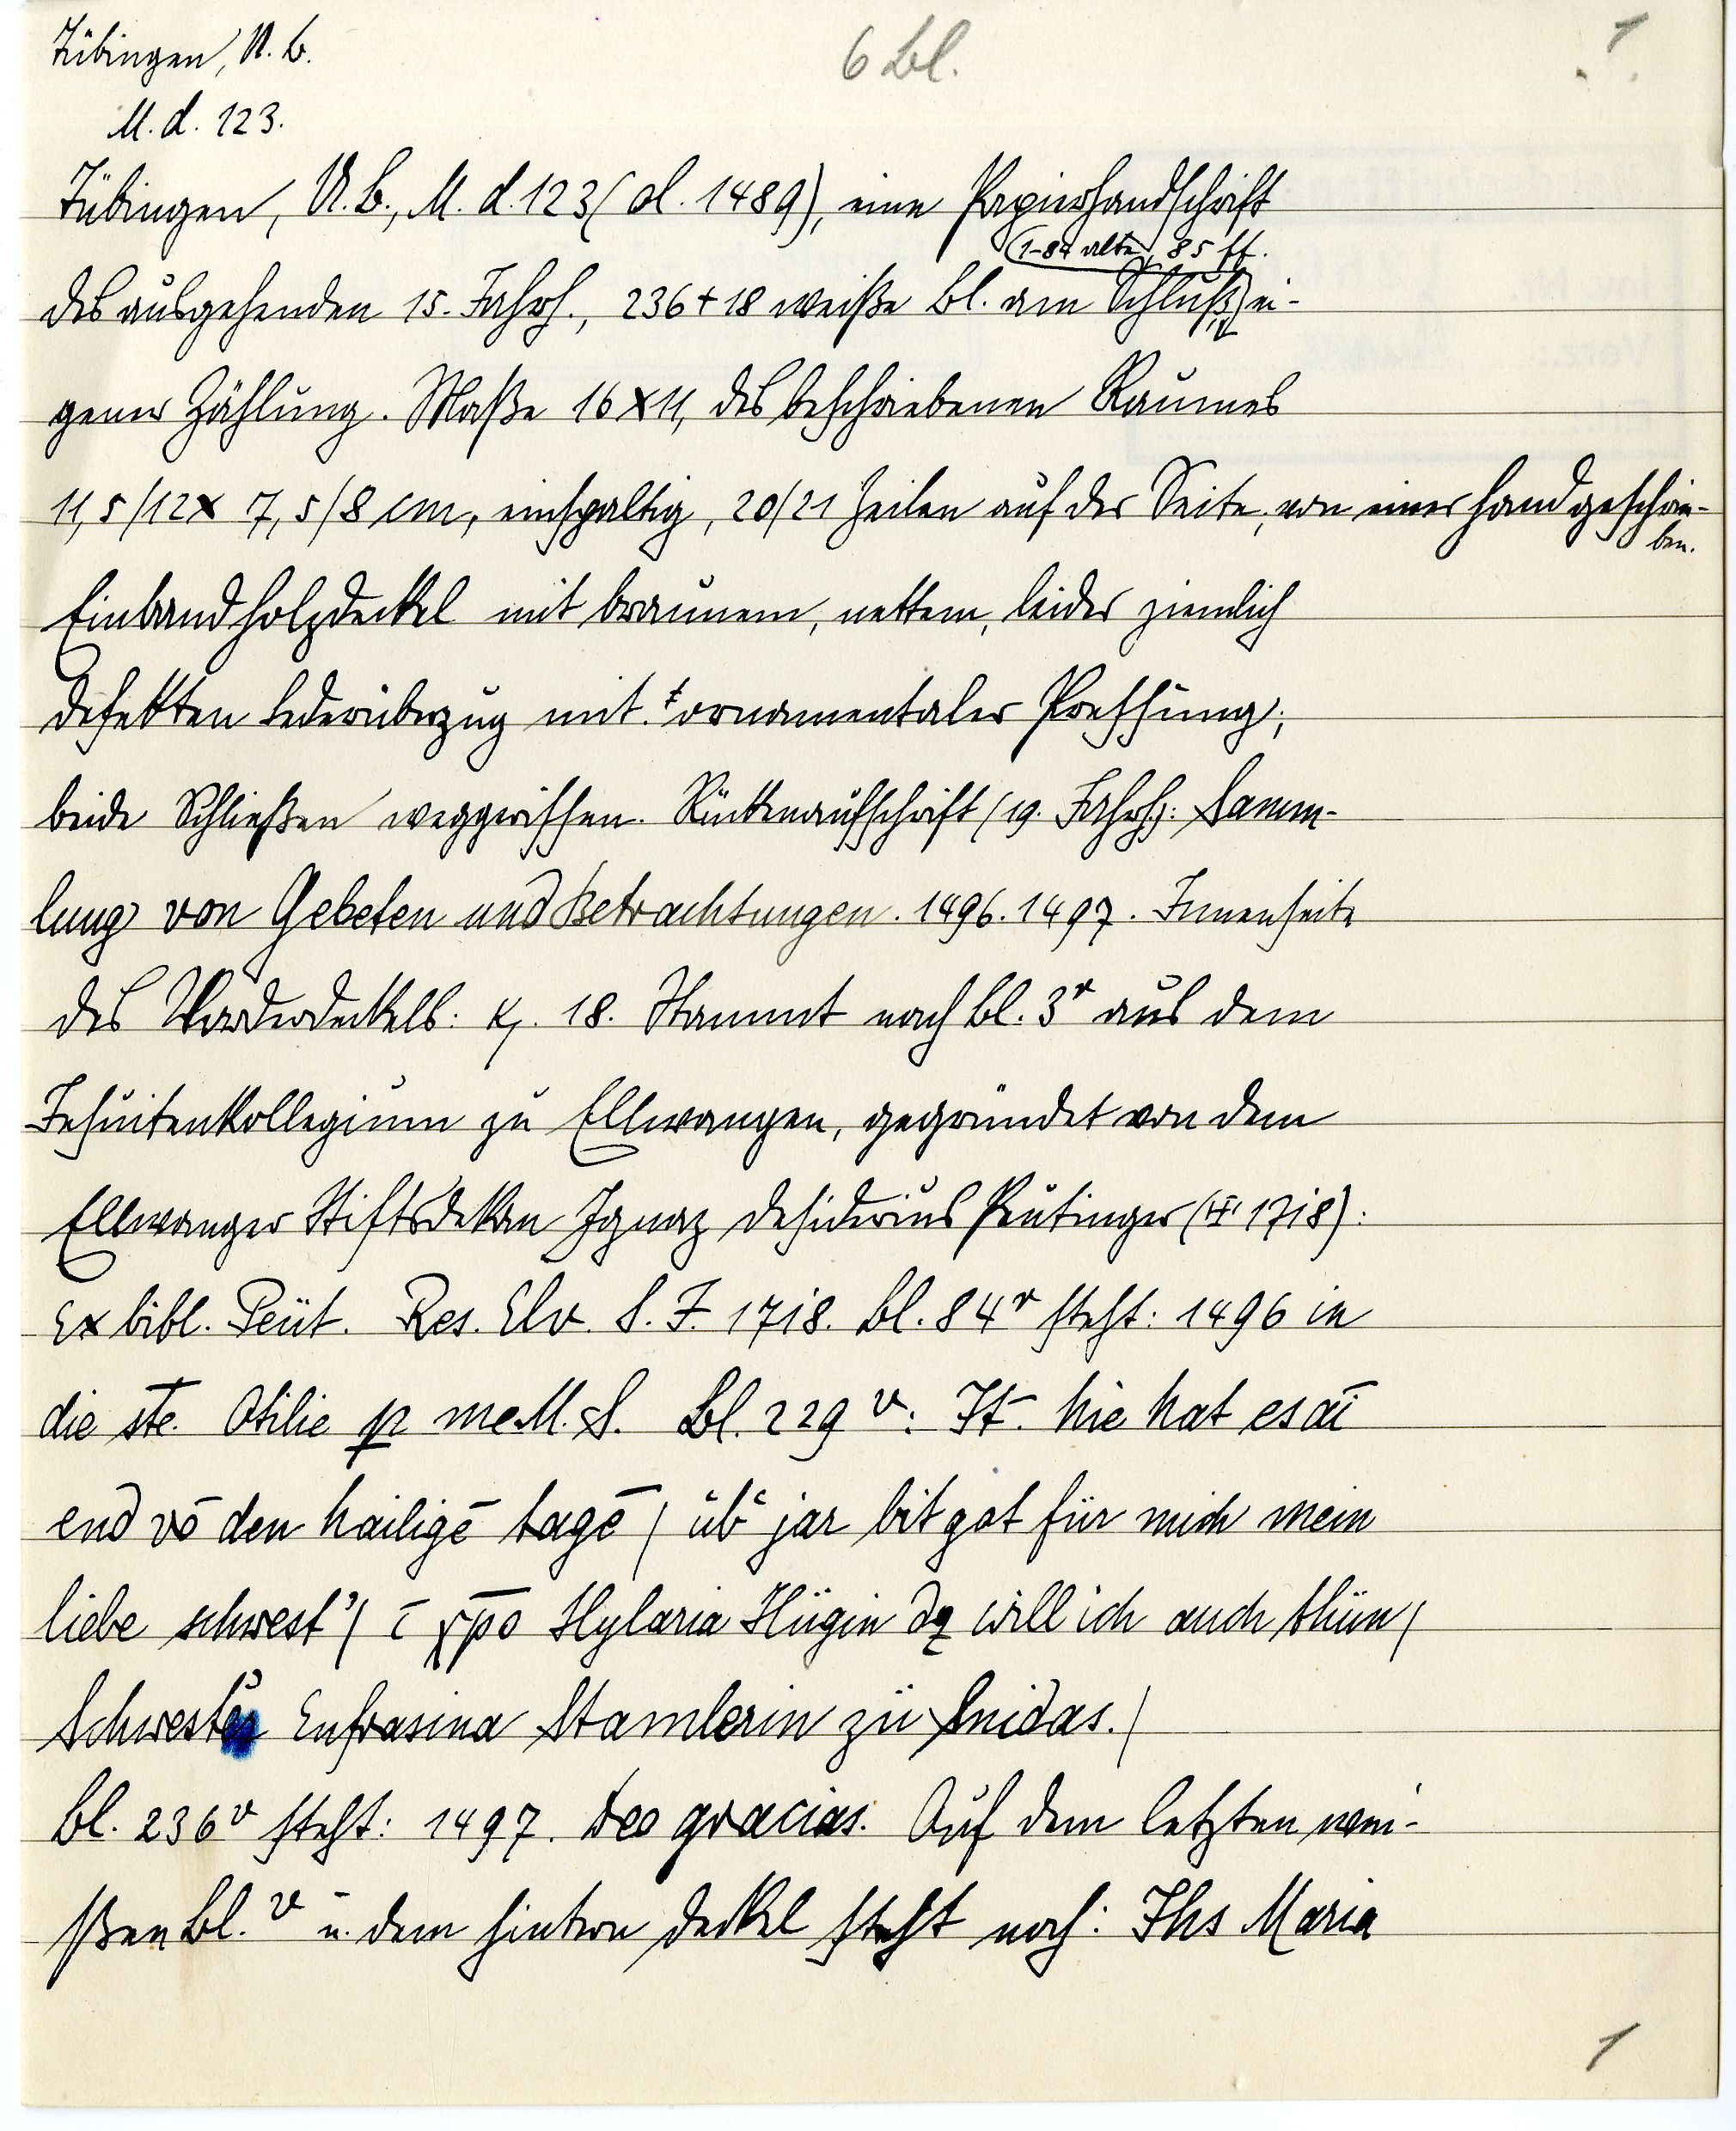 Tübingen, U.B.
6 Bl.
1
M.d. 123.
Tübingen, U.B., M.d. 123 (ol. 1489), eine Papierhandschrift
(1-84 alte, 85 ff.
des ausgehenden 15. Jahrh., 236+18 weiße Bl. am Schluß) ei-
gener Zählung. Maße 16×11, des beschriebenen Raumes
11,5/12× 7,5/8 cm, einspaltig, 20/21 Zeilen auf der Seite, von einer Hand geschrie-
ben.
Einband Holzdeckel mit braunem, nettem, leider ziemlich
defekten Lederüberzug mit ornamentaler Pressung;
beide Schließen weggerissen. Rückenaufschrift (19. Jahrh.): Samm-
lung von Gebeten und Betrachtungen. 1496. 1497. Innenseite
des Vorderdeckels: K. 18. Stammt nach Bl. 3r aus dem
Jesuitenkollegium zu Ellwangen, gegründet von dem
Ellwanger Stiftsdekan Ignaz Desiderius Peutinger († 1718):
Ex bibl. Peüt. Res. Elv. S.J. 1718. Bl. 84v steht: 1496 in
die ste. Otilie ꝑ me M.S. Bl. 229v: It̄. hie hat es āi
end vō den hailigē tagē / üb' jar bit got für mich mein
liebe schwest' / ī xp̄o Hylaria Hügin dz will ich auch thün /
Schwester Eufrasina Stamlerin zü Snidas. /
Bl. 236v steht: 1497. Deo gracias. Auf dem letzten wei-
ßen Bl. v u. dem hintern Deckel steht noch: Ihs Maria
1